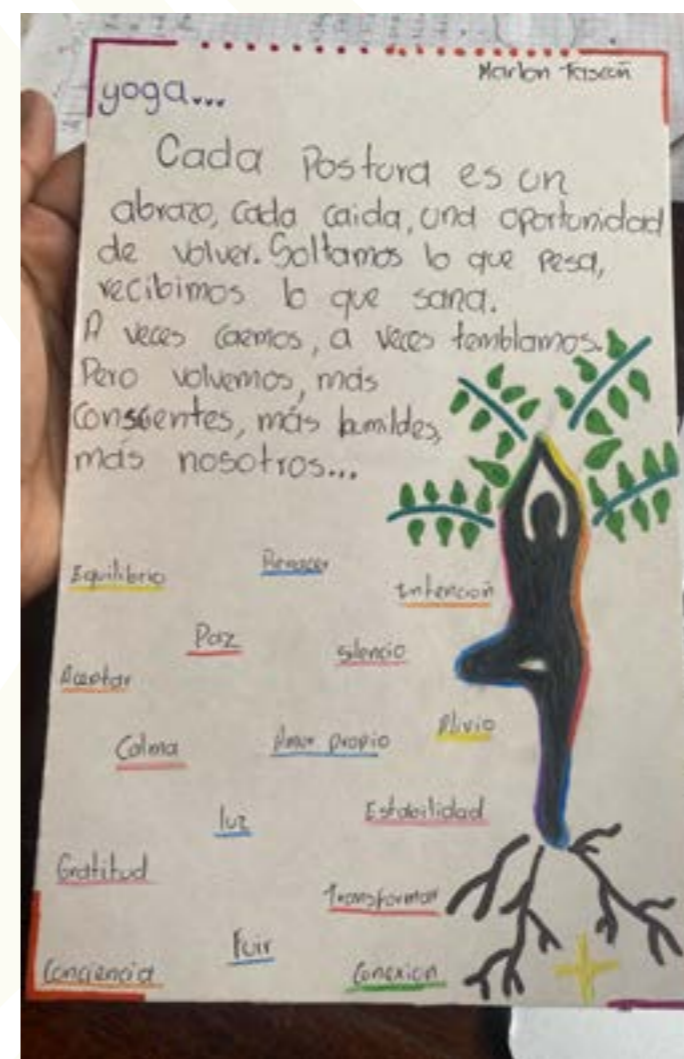 Marlon Tascón
yoga...
Cada Postura es un
abrazo, cada caida, una oportunidad
de volver. Soltamos lo que pesa,
recibimos lo que sana.
A veces caemos, a veces temblamos.
Pero volvemos, más
conscientes, más humildes,
más nosotros...
Equilibrio
Renacer
Intención
Paz
Silencio
Aceptar
Calma
Amor propio
Alivio
luz
Estabilidad
Gratitud
Transformar
Fuir
Conciencia
Conexion